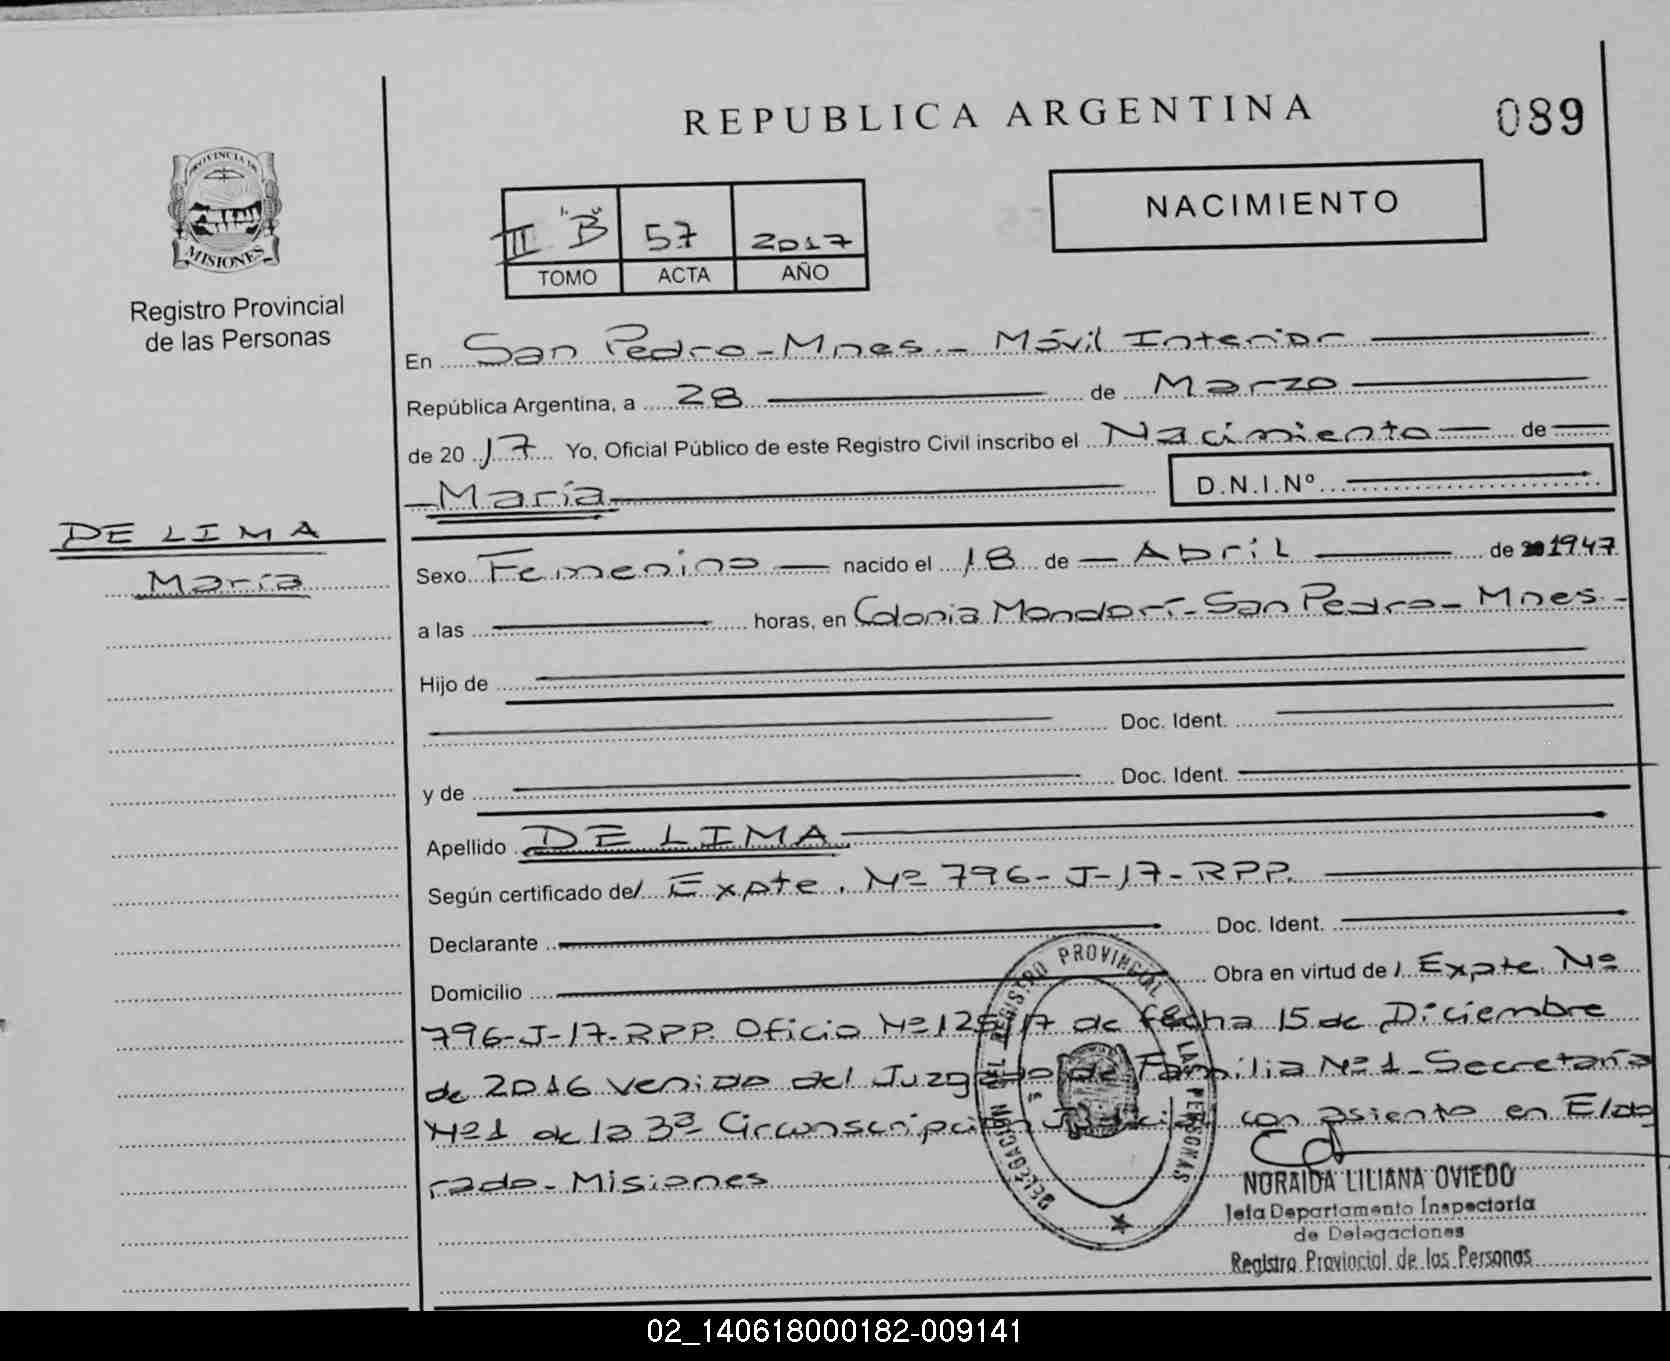 REPUBLICA ARGENTINA
089
PROVINCIA DE
MISIONES
Registro Provincial
de las Personas
III "B" 57 2017
TOMO ACTA AÑO
NACIMIENTO
En San Pedro - Mnes. - Móvil Interior
República Argentina, a 28 de Marzo
de 2017 Yo, Oficial Público de este Registro Civil inscribo el Nacimiento de
María D.N.I.Nº
DE LIMA
María
Sexo Femenino nacido el 18 de Abril de 1947
a las horas, en Colonia Mondorí - San Pedro - Mnes -
Hijo de
Doc. Ident.
y de Doc. Ident.
Apellido DE LIMA
Según certificado del Expte. Nº 796-J-17-RPP.
Declarante Doc. Ident.
Domicilio Obra en virtud del Expte. Nº
796-J-17-RPP. Oficio Nº 17 de fecha 15 de Diciembre
de 2016 venido del Juzgado de Familia Nº 1 - Secretaría
Nº 1 de la 3ª Circunscripción Judicial con asiento en Eldo
rado - Misiones
DELEGACION DEL REGISTRO PROVINCIAL DE LAS PERSONAS
NORAIDA LILIANA OVIEDO
Jefa Departamento Inspectoría
de Delegaciones
Registro Provincial de las Personas
02_140618000182-009141